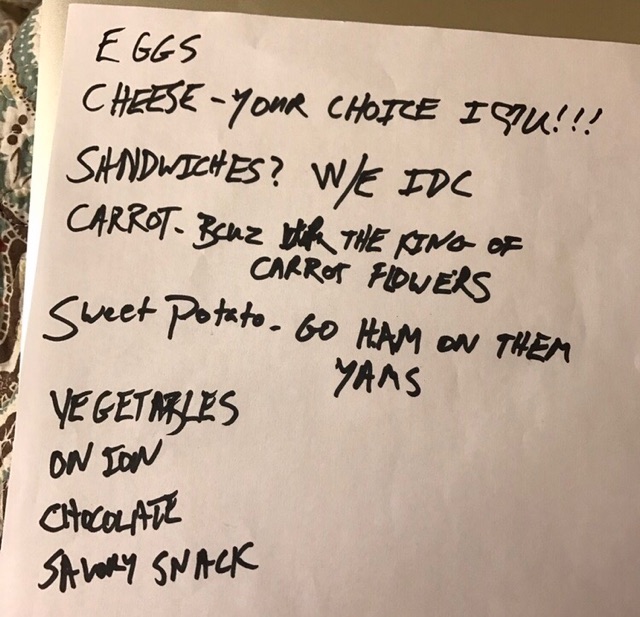 EGGS
CHEESE - YOUR CHOICE I ♡ U!!!
SANDWICHES? W/E IDC
CARROT - BCUZ THE KING OF
CARROT FLOWERS
Sweet Potato - GO HAM ON THEM
YAMS
VEGETABLES
ONION
CHOCOLATE
SAVORY SNACK